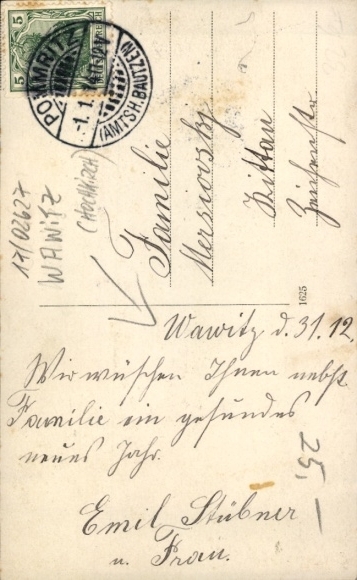 5
5
POMMRITZ
1.1.
(AMTSH. BAUTZEN)
17/02627
WAWITZ
(HOCHKIRCH)
Familie
Zittau
1625
Wawitz d. 31.12.
Wir wüschen Ihnen nebst
Familie ein gesundes
neues Jahr.
25,—
Emil Stübner
u. Frau.